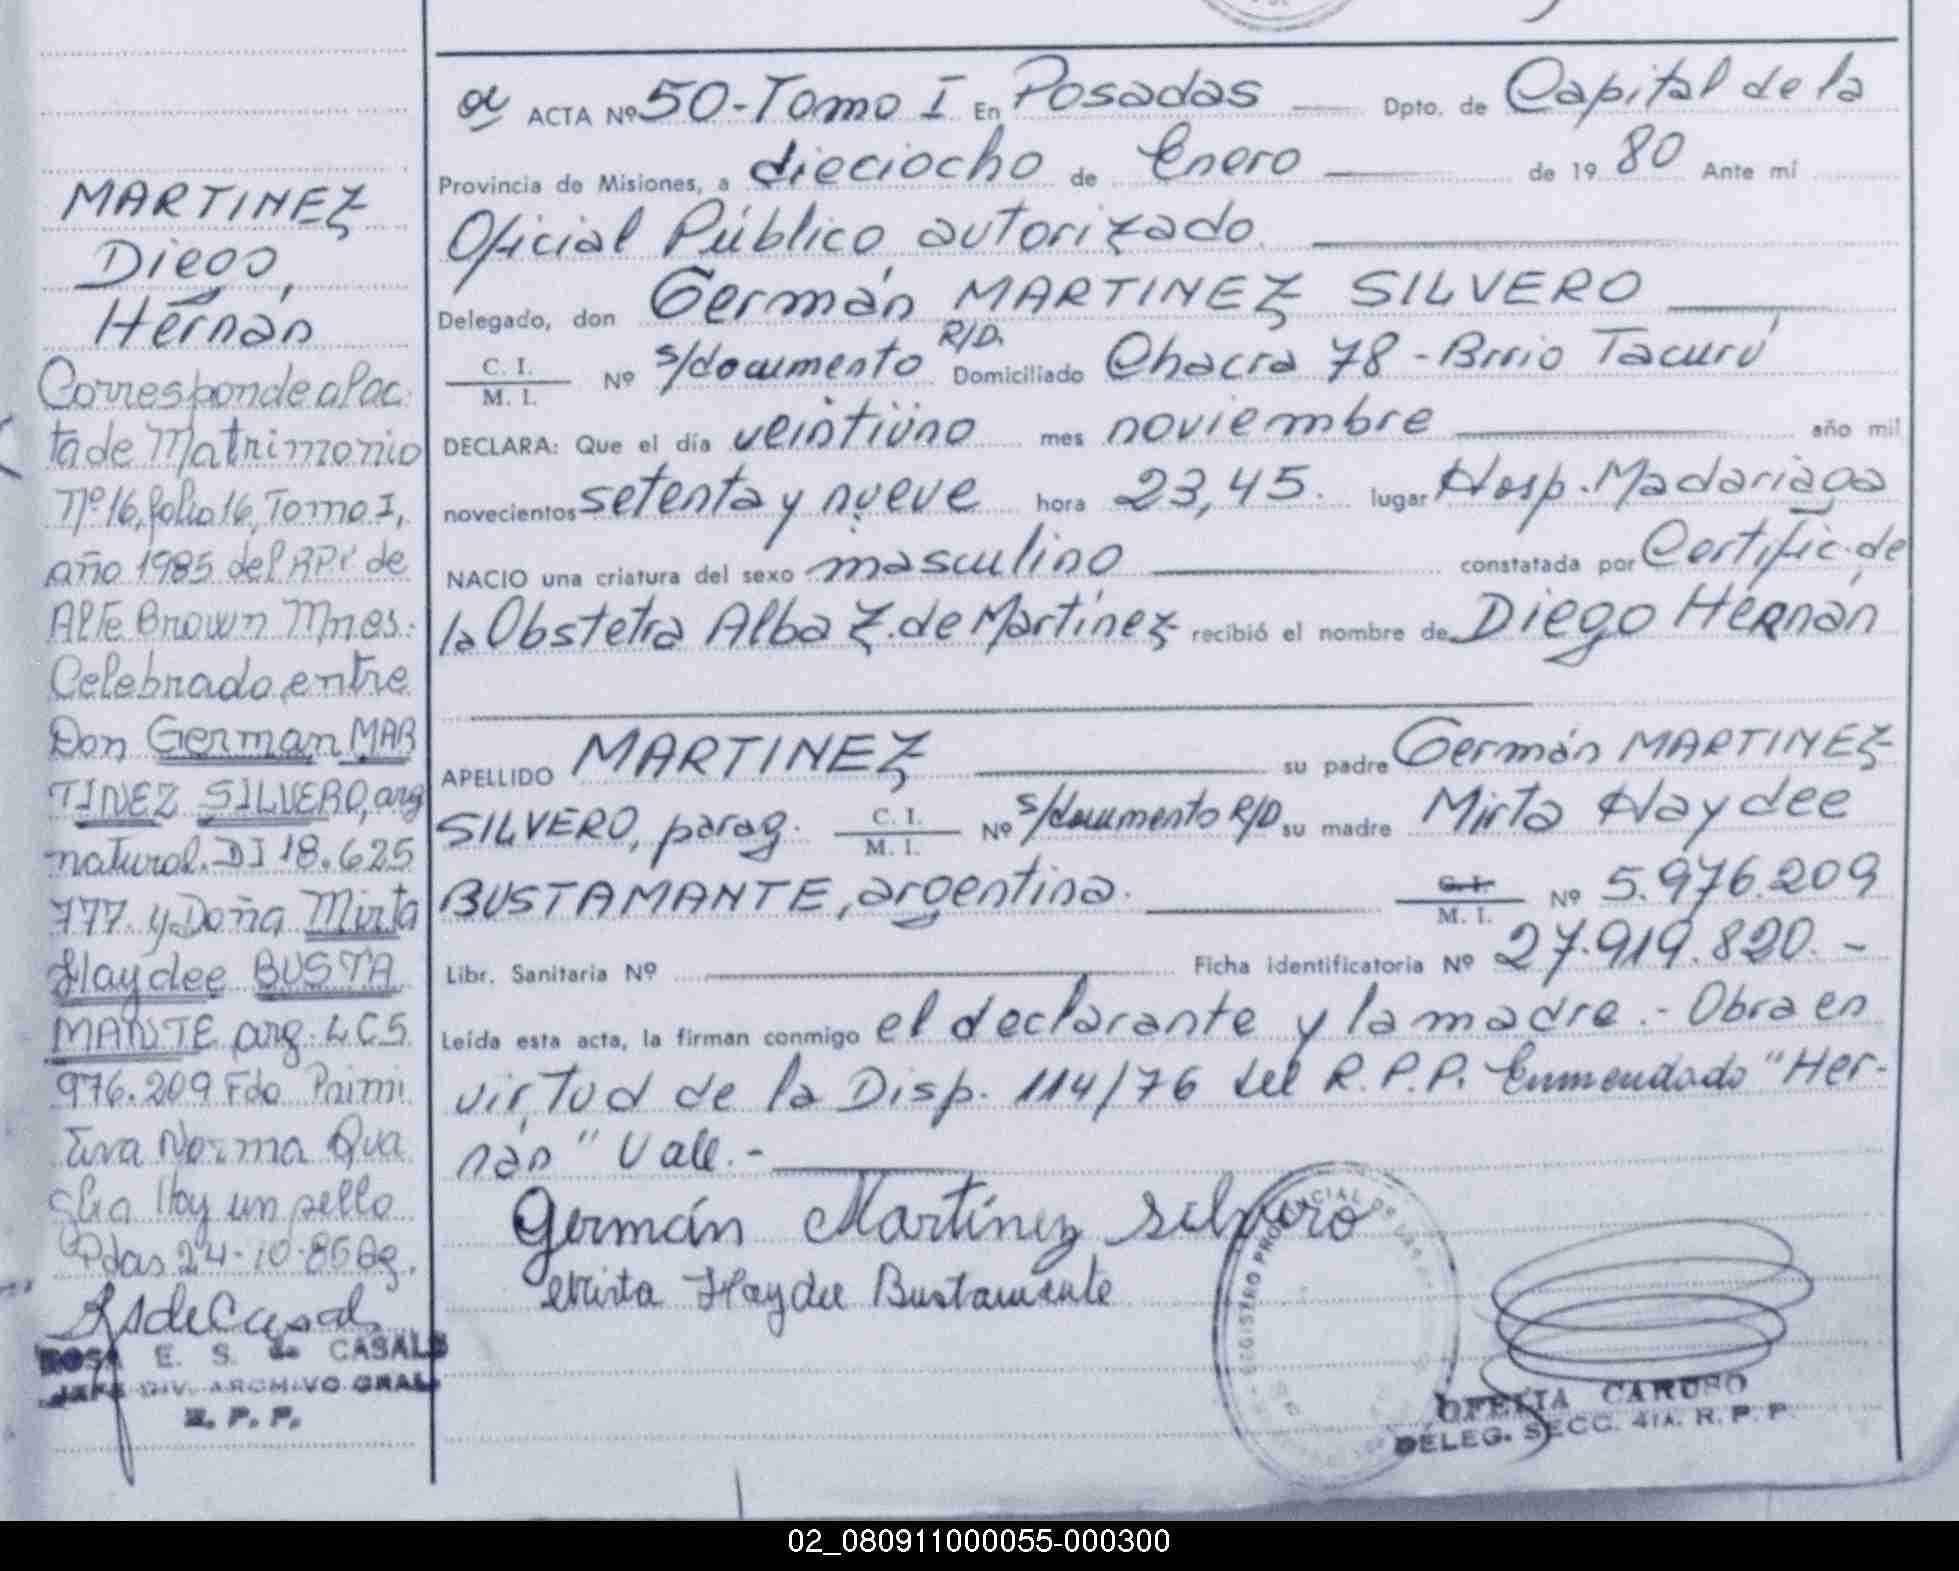 MARTINEZ
Diego,
Hernán
Corresponde al ac.
ta de Matrimonio
Nº 16, folio 16, Tomo I,
año 1985 del RPP de
Alte Brown Mnes.
Celebrado entre
Don German MAR
TINEZ SILVERO, arg
natural. DI 18.625
777. y Doña Mirta
Haydee BUSTA
MANTE arg. LC 5
976.209 Fdo
Eva Norma
Hay un sello
Pdas 24-10-85
ROSA E. S. de CASALS
JEFE DIV. ARCHIVO GRAL.
R. P. P.
ACTA Nº 50-Tomo I En Posadas Dpto. de Capital de la
Provincia de Misiones, a dieciocho de Enero de 19 80 Ante mí
Oficial Público autorizado
Delegado, don Germán MARTINEZ SILVERO
C. I. M. I. Nº s/documento R/D. Domiciliado Chacra 78 - Brrio Tacurú
DECLARA: Que el día veintiuno mes noviembre año mil
novecientos setenta y nueve hora 23,45. lugar Hosp. Madariaga
NACIO una criatura del sexo masculino constatada por Certific. de
la Obstetra Alba Z. de Martínez recibió el nombre de Diego Hernán
APELLIDO MARTINEZ su padre Germán MARTINEZ
SILVERO, parag. C. I. M. I. Nº s/documento R/D su madre Mirta Haydee
BUSTAMANTE, argentina. C. I. M. I. Nº 5.976.209
Libr. Sanitaria Nº Ficha identificatoria Nº 27.919.820.-
Leída esta acta, la firman conmigo el declarante y la madre.- Obra en
virtud de la Disp. 114/76 del R.P.P. Enmendado "Her-
nán" Vale.-
Germán Martínez Silvero
Mirta Haydee Bustamante
REGISTRO PROVINCIAL DE
OFELIA CARUSO
DELEG. SECC. 4TA. R. P. P.
02_080911000055-000300